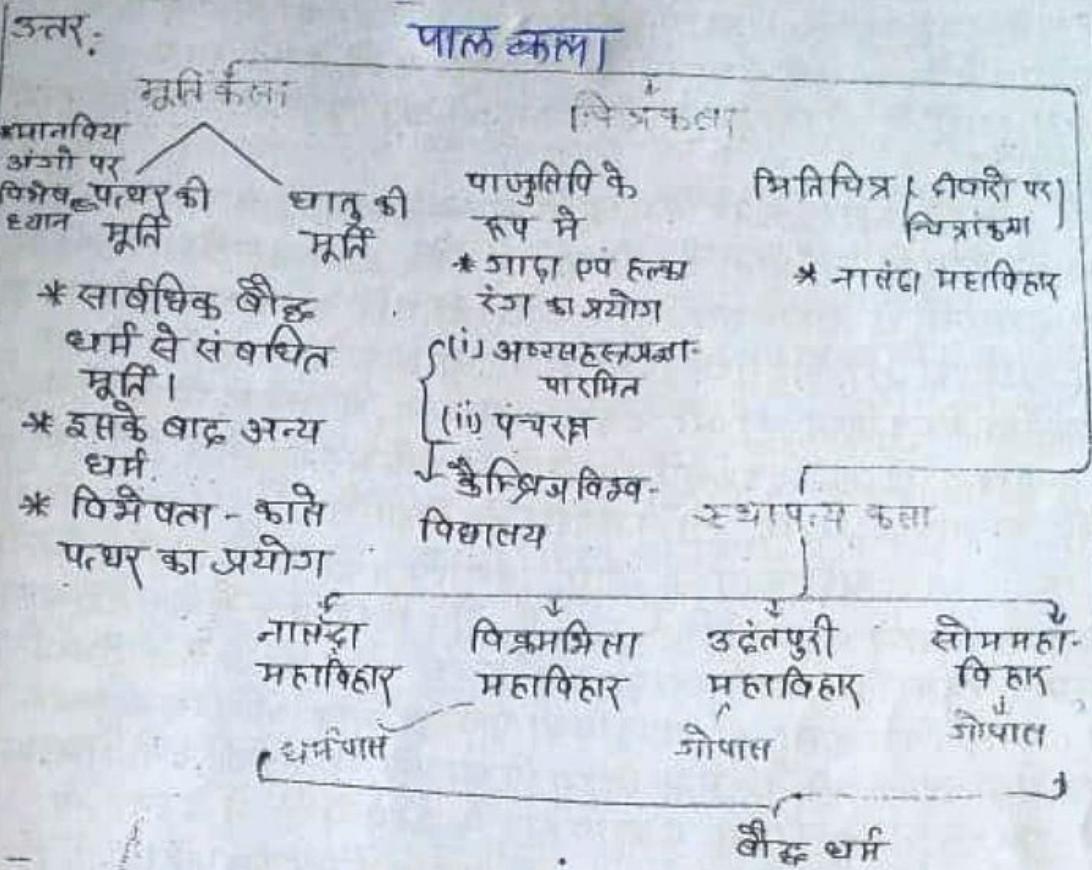 उत्तर:
पाल कला
मूर्ति कला
*मानविय
अंगो पर
विशेष
ध्यान
पत्थर की
मूर्ति
धातु की
मूर्ति
* सार्वधिक बौद्ध
धर्म से संबधित
मूर्ति।
* इसके बाद अन्य
धर्म
* विशेषता - काले
पत्थर का प्रयोग
चित्रकला
पाण्डुलिपि के
रूप मे
* गाढ़ा एवं हल्का
रंग का प्रयोग
(i) अष्टसहस्त्रप्रज्ञा-
पारमित
(ii) पंचरक्ष
कैम्ब्रिज विश्व-
विद्यालय
भितिचित्र (दीवारो पर)
चित्रांकन
* नालंदा महाविहार
स्थापत्य कला
नालंदा
महाविहार
विक्रमशिला
महाविहार
धर्मपाल
उदंतपुरी
महाविहार
गोपाल
सोममहा-
विहार
गोपाल
बौद्ध धर्म